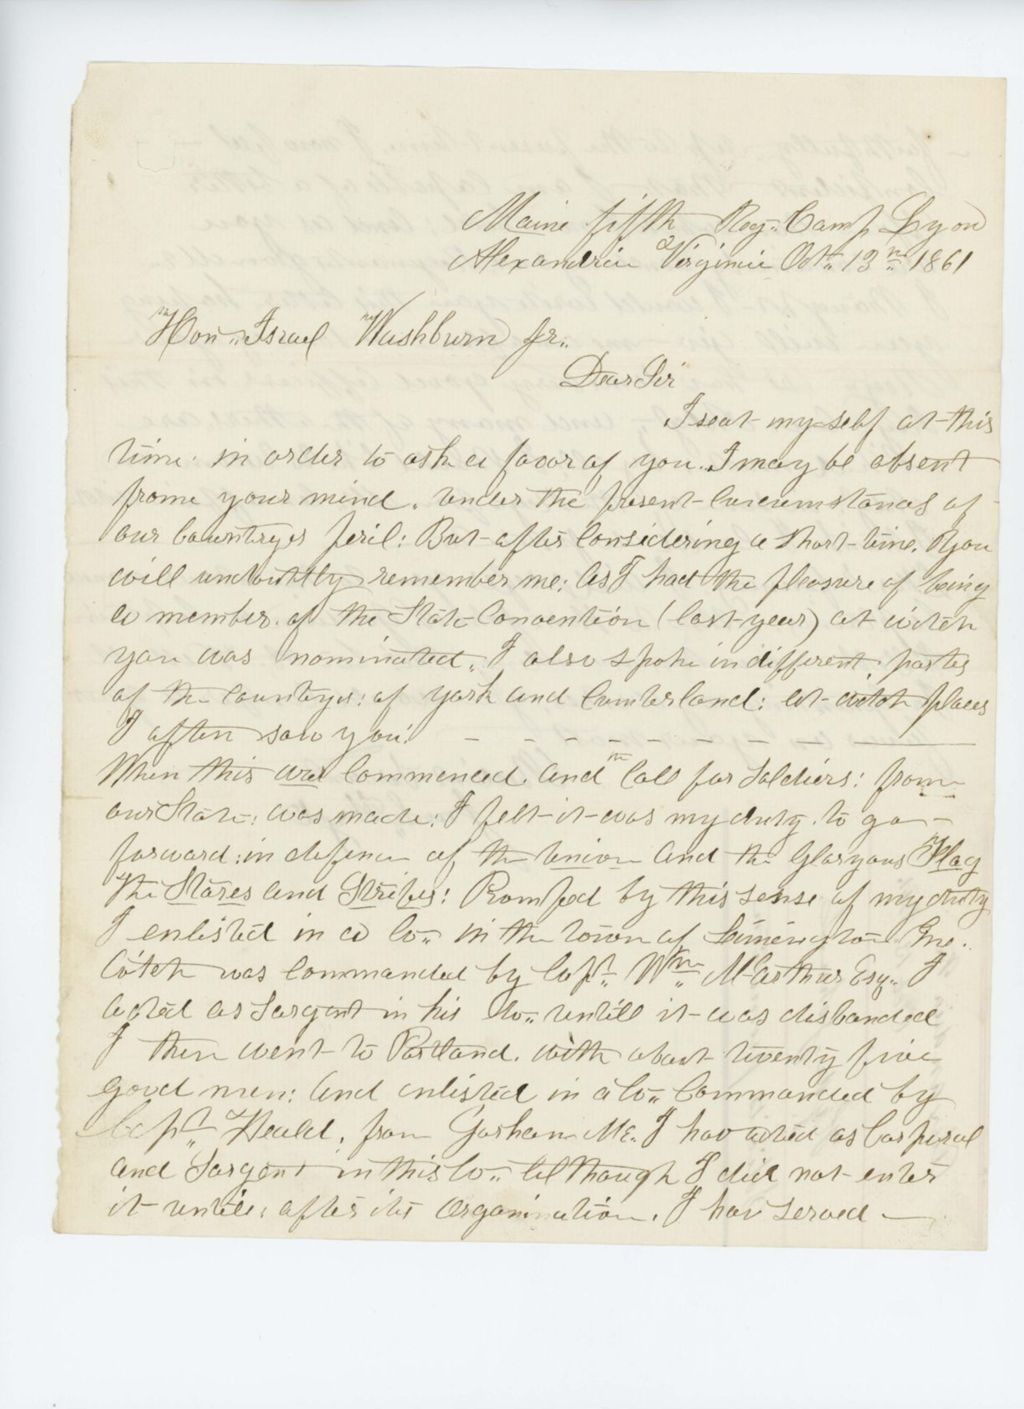 Maine fifth Reg. Camp Lyon
Alexandria Virginia Oct. 13th 1861
Hon. Israel Washburn Jr.
Dear Sir
I seat my-self at-this
time. in order to ask a favor of you. I may be absent
frome your mind. under the present-Circumstances of
our Countryes peril: But-after Considering a Short-time. you
will undoubtly remember me: as I had the pleasure of being
a member. of the State Convention (last-year) at-witch
you was nominated. I also spoke in different partes
of the Countyes: of york and Cumberland: at-witch places
I often saw you.
When this war Commenced. and the Call for Soldiers: from
our State: was made: I felt-it-was my duty. to go
forward: in defence of the Union and the Gloryous Flag
The Stares and Stripes: Romped by this sense of my duty
I enlisted in a Co. in the town of Limington Me.
Witch was Commanded by Capt. Wm. McArthur Esq. I
acted as Sargent in his Co. untill it-was disbanded
I then went-to Portland. with about twenty five
good men: and enlisted in a Co. Commanded by
Capt. Heald, from Gorham Me. I hav acted as Corperal
and Sargent in this Co. al though I did not-enter
it-untill, after its Organization. I hav served